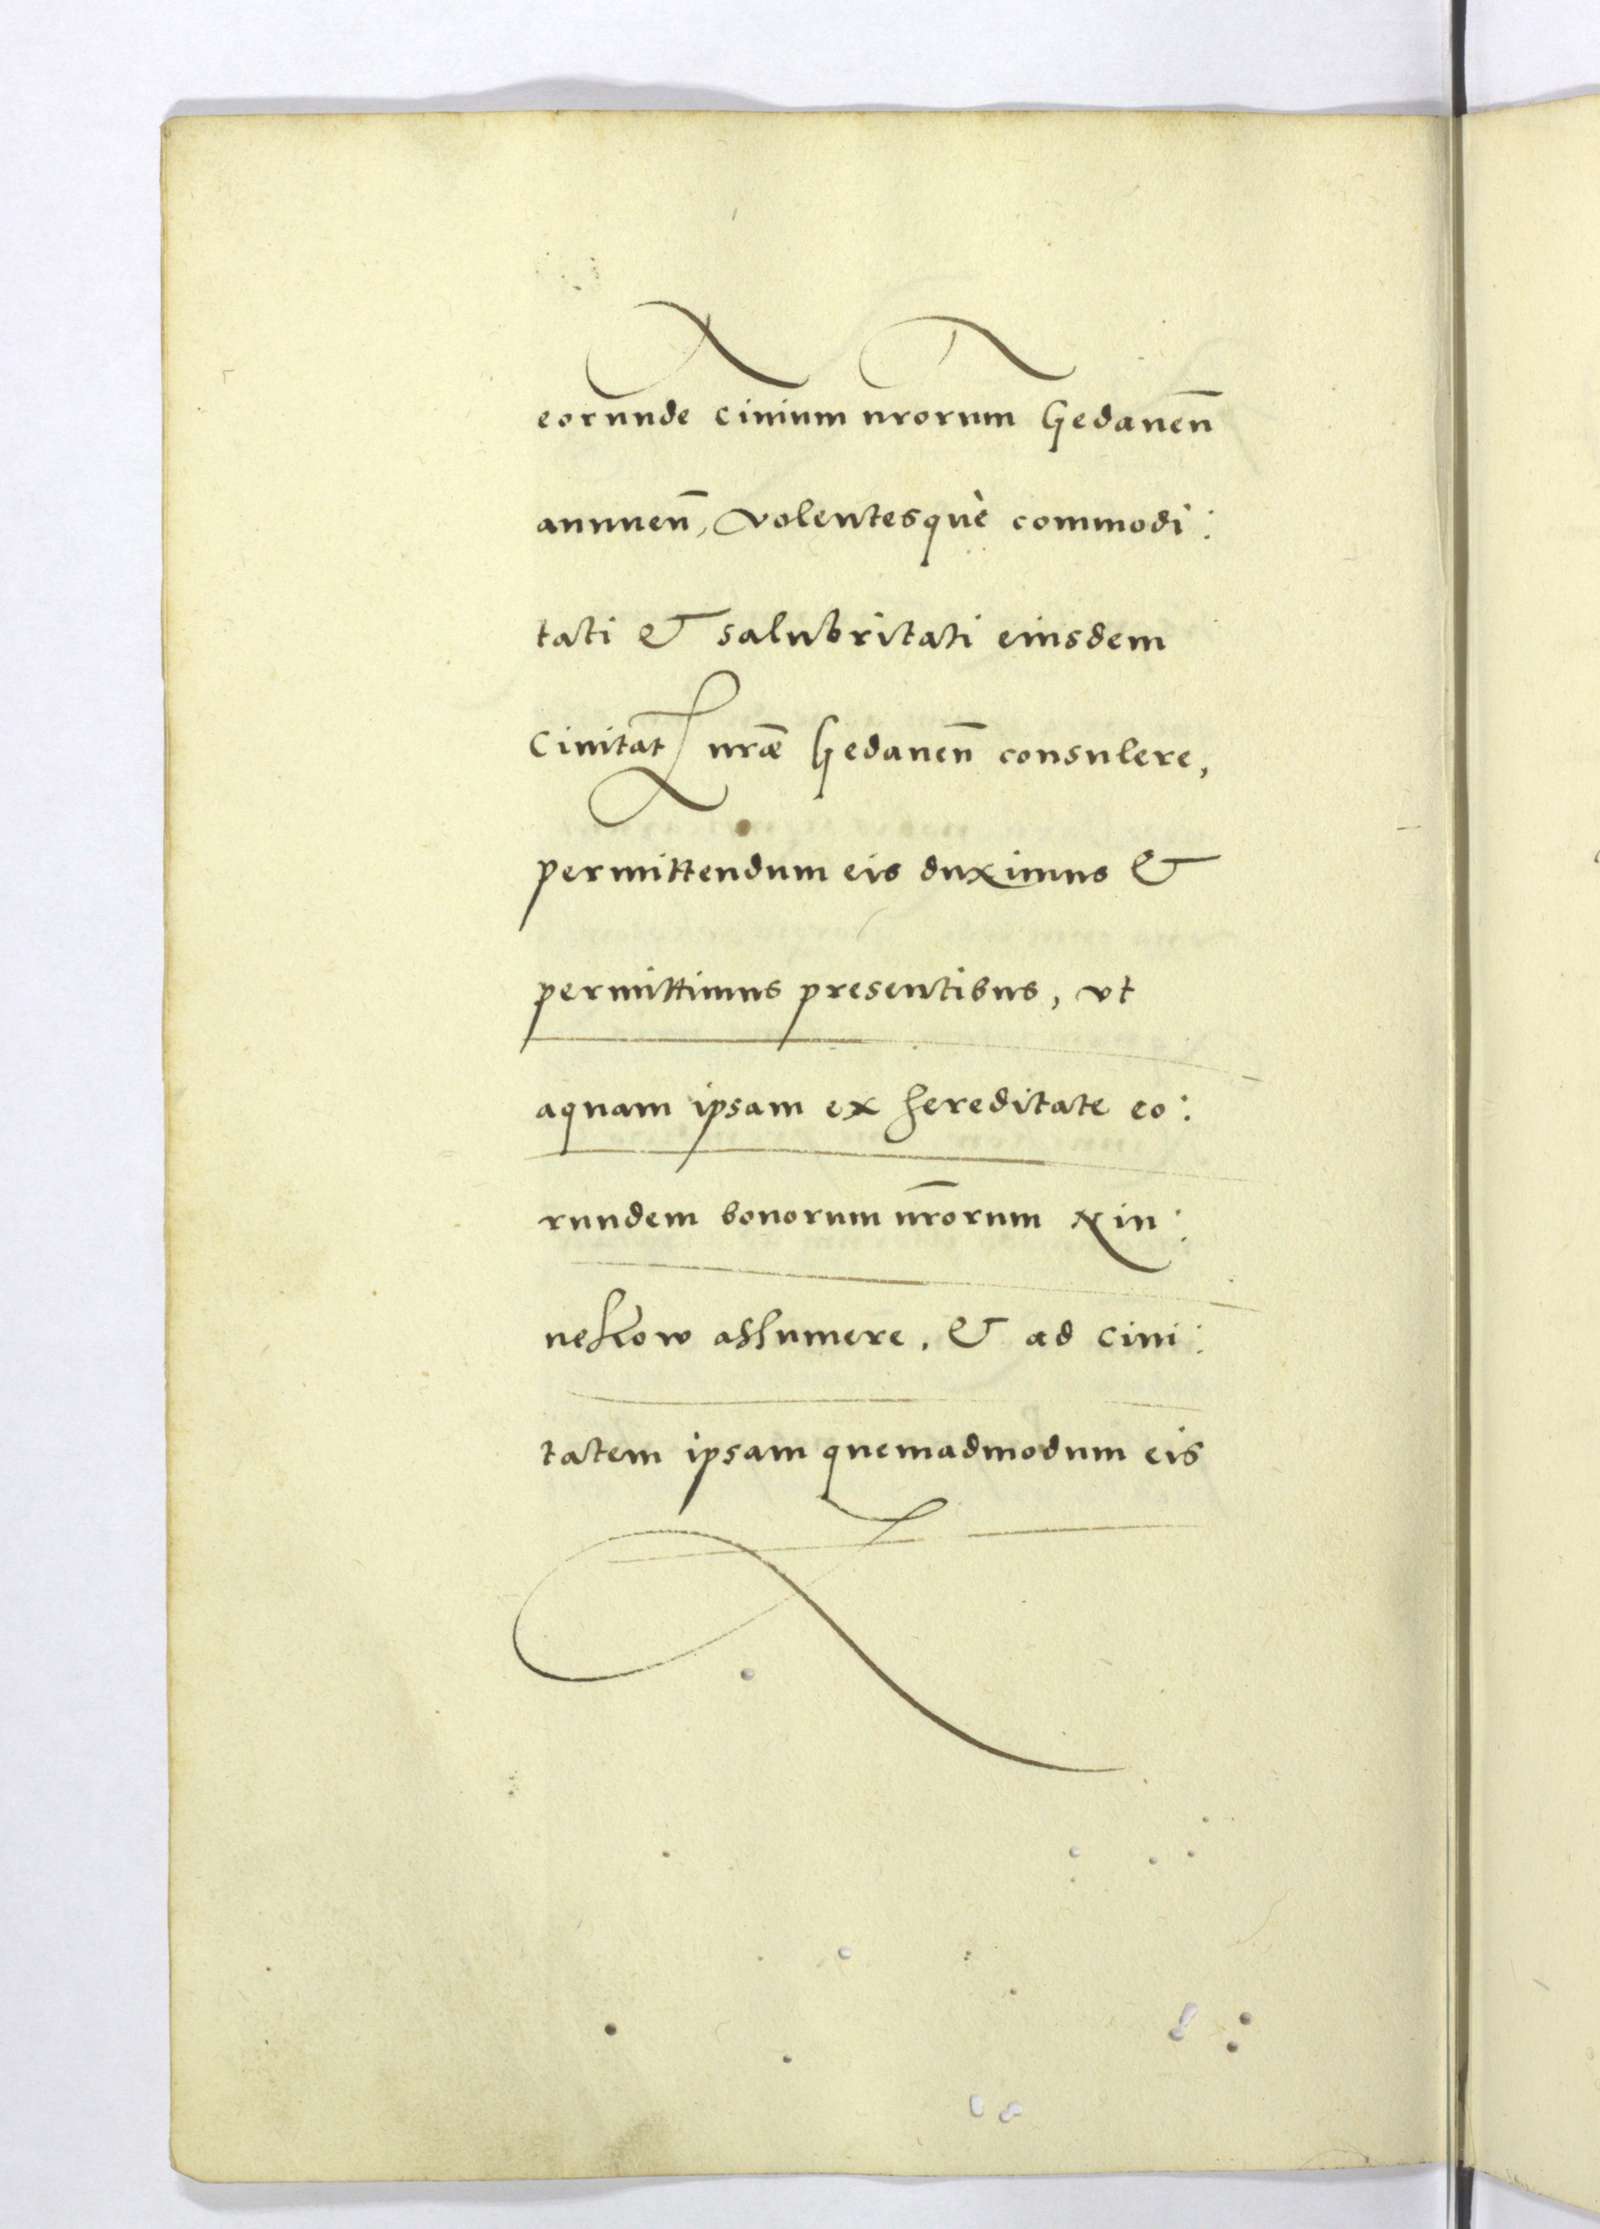 eorunde ciuium nrorum Gedanen̄
annuen̄, volentesquè commodi:
tati & salubritati eiusdem
Ciuitat nrāe Gedanen̄ consulere,
permittendum eis duximus &
permittimus presentibus, vt
aquam ipsam ex hereditate eo:
rundem bonorum nr̄orum Nin:
nekow assumere, & ad ciui:
tatem ipsam quemadmodum eis